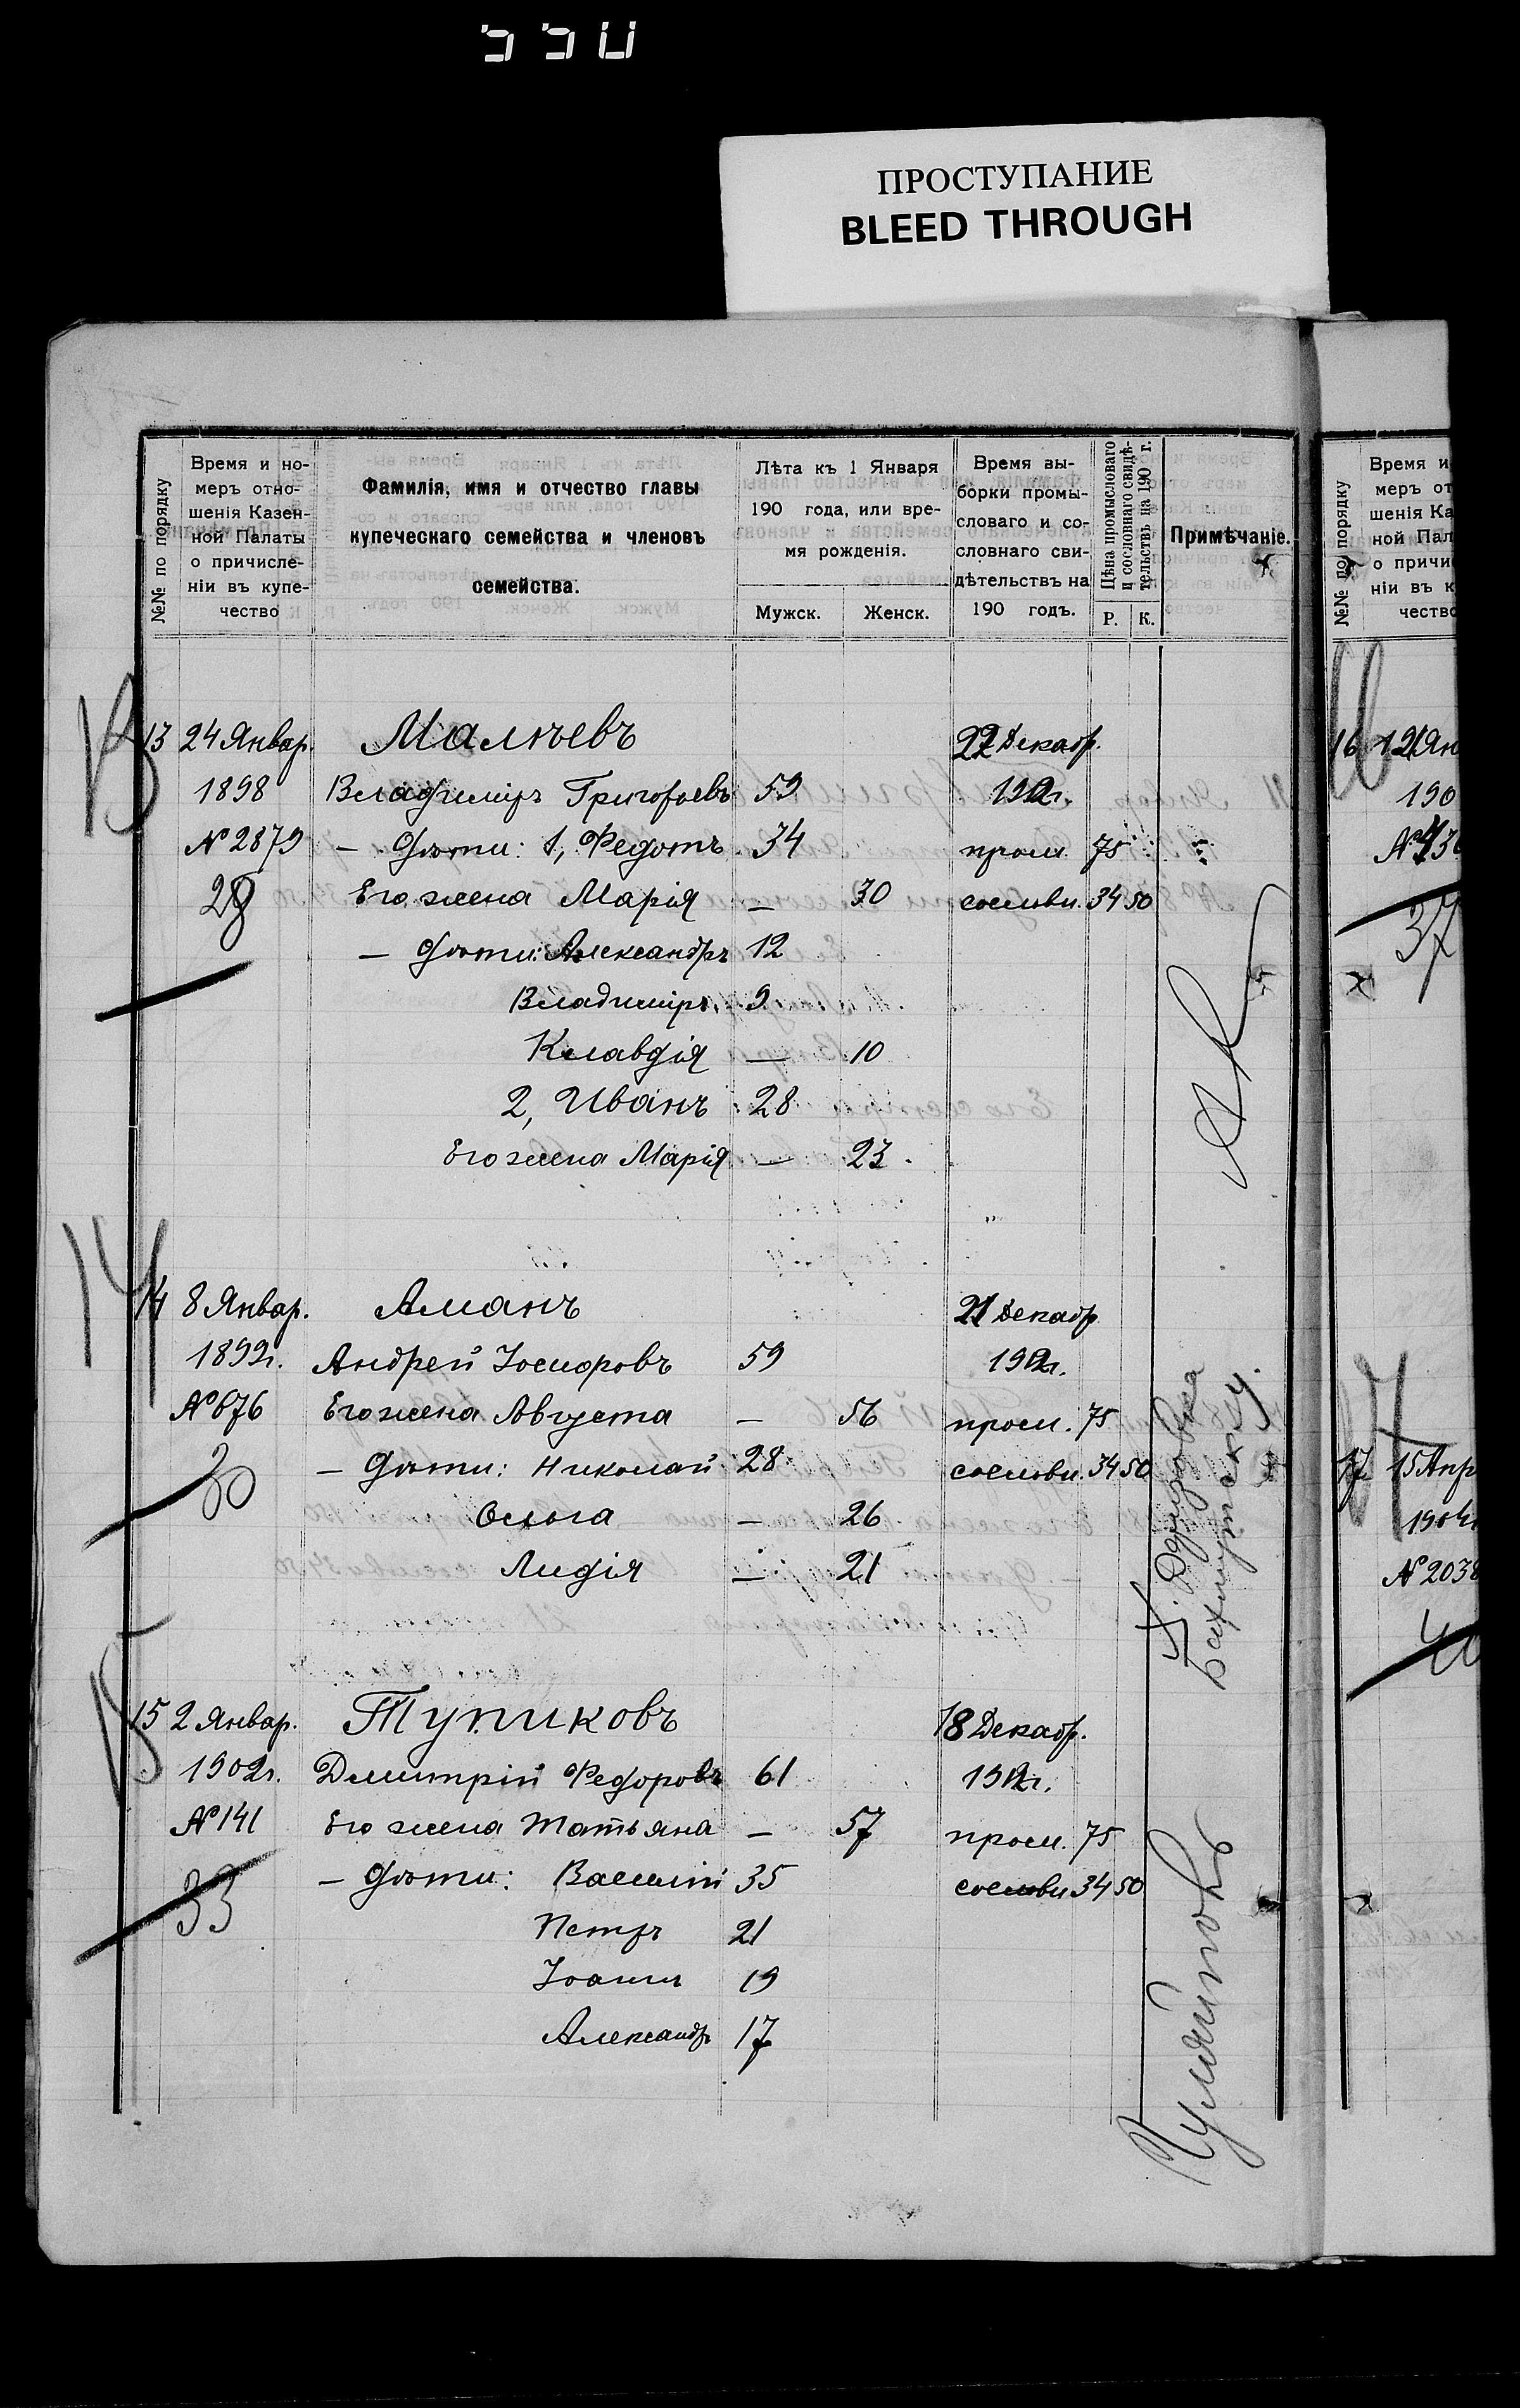 ПРОСТУПАНИЕ
BLEED THROUGH
№№ по порядку
Время и но-
меръ отно-
шенія Казен-
ной Палаты
о причисле-
ніи въ купе-
чество
Фамилія, имя и отчество главы
купеческаго семейства и членовъ
семейства.
Лѣта къ 1 Января
190 года, или вре-
мя рожденія.
Мужск. Женск.
Время вы-
борки промы-
словаго и со-
словнаго сви-
дѣтельствъ на
190 годъ.
Цѣна промысловаго
и сословнаго свидѣ-
тельствъ на 190 г.
Р. К.
Примѣчаніе.
13
13 24 Январ. Малѣевъ 22 Декабр.
1898 Владиміръ Григорьевъ 59 1912г.
№ 2879 — Дѣти: 1, Федотъ 34 пром. 75
29 Его жена Марія — 30 сословн. 34 50
— Дѣти: Александръ 12
Владиміръ 9
Клавдія — 10
2, Иванъ 28
Его жена Марія — 23
14
14 8 Январ. Аманъ 21 Декабр.
1892г. Андрей Іосифовъ 59 1912г.
№ 676 Его жена Августа — 56 пром. 75
30 — Дѣти: Николай 28 сословн. 34 50
Ольга — 26
Лидія — 21
15
15 2 Январ. Тупиковъ 18 Декабр.
1902г. Димитрій Федоровъ 61 1912г.
№ 141 Его жена Татьяна — 57 пром. 75
33 — Дѣти: Василій 35 сословн. 34 50
Петръ 21
Іоаннъ 19
Александръ 17
№№ по порядку
Время и
меръ от
шенія Ка
ной Пал
о причи
ніи въ к
чество
16
16 12 Ян
190
37
17
17 15 Апр
1904г
№ 2038
40